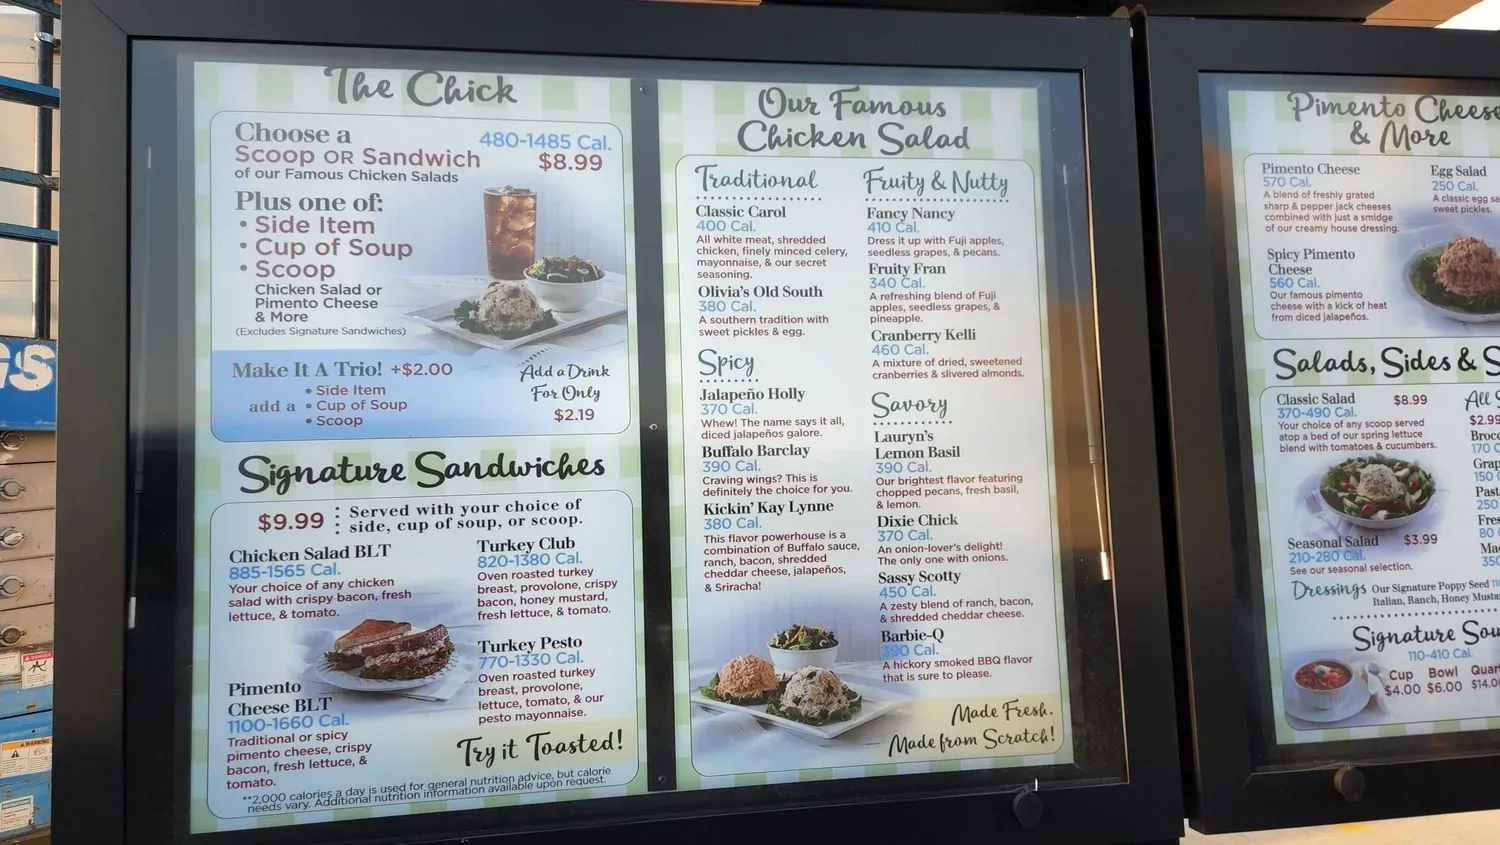 The Chick
Choose a
Scoop OR Sandwich
of our Famous Chicken Salads
480-1485 Cal.
$8.99
Plus one of:
• Side Item
• Cup of Soup
• Scoop
Chicken Salad or
Pimento Cheese
& More
(Excludes Signature Sandwiches)
Make It A Trio! +$2.00
add a
• Side Item
• Cup of Soup
• Scoop
Add a Drink
For Only
$2.19
Signature Sandwiches
$9.99
Served with your choice of
side, cup of soup, or scoop.
Chicken Salad BLT
885-1565 Cal.
Your choice of any chicken
salad with crispy bacon, fresh
lettuce, & tomato.
Pimento
Cheese BLT
1100-1660 Cal.
Traditional or spicy
pimento cheese, crispy
bacon, fresh lettuce, &
tomato.
Turkey Club
820-1380 Cal.
Oven roasted turkey
breast, provolone, crispy
bacon, honey mustard,
fresh lettuce, & tomato.
Turkey Pesto
770-1330 Cal.
Oven roasted turkey
breast, provolone,
lettuce, tomato, & our
pesto mayonnaise.
Try it Toasted!
**2,000 calories a day is used for general nutrition advice, but calorie
needs vary. Additional nutrition information available upon request.
Our Famous
Chicken Salad
Traditional
Classic Carol
400 Cal.
All white meat, shredded
chicken, finely minced celery,
mayonnaise, & our secret
seasoning.
Olivia's Old South
380 Cal.
A southern tradition with
sweet pickles & egg.
Spicy
Jalapeño Holly
370 Cal.
Whew! The name says it all,
diced jalapeños galore.
Buffalo Barclay
390 Cal.
Craving wings? This is
definitely the choice for you.
Kickin' Kay Lynne
380 Cal.
This flavor powerhouse is a
combination of Buffalo sauce,
ranch, bacon, shredded
cheddar cheese, jalapeños,
& Sriracha!
Fruity & Nutty
Fancy Nancy
410 Cal.
Dress it up with Fuji apples,
seedless grapes, & pecans.
Fruity Fran
340 Cal.
A refreshing blend of Fuji
apples, seedless grapes, &
pineapple.
Cranberry Kelli
460 Cal.
A mixture of dried, sweetened
cranberries & slivered almonds.
Savory
Lauryn's
Lemon Basil
390 Cal.
Our brightest flavor featuring
chopped pecans, fresh basil,
& lemon.
Dixie Chick
370 Cal.
An onion-lover's delight!
The only one with onions.
Sassy Scotty
450 Cal.
A zesty blend of ranch, bacon,
& shredded cheddar cheese.
Barbie-Q
390 Cal.
A hickory smoked BBQ flavor
that is sure to please.
Made Fresh.
Made from Scratch!
Pimento Cheese
& More
Pimento Cheese
570 Cal.
A blend of freshly grated
sharp & pepper jack cheeses
combined with just a smidge
of our creamy house dressing.
Spicy Pimento
Cheese
560 Cal.
Our famous pimento
cheese with a kick of heat
from diced jalapeños.
Egg Salad
250 Cal.
A classic egg sa
sweet pickles.
Salads, Sides & S
Classic Salad $8.99
370-490 Cal.
Your choice of any scoop served
atop a bed of our spring lettuce
blend with tomatoes & cucumbers.
Seasonal Salad $3.99
210-280 Cal.
See our seasonal selection.
All S
$2.99
Brocc
170 C
Grap
150 C
Past
250
Fres
80
Mac
350
Dressings Our Signature Poppy Seed
Italian, Ranch, Honey Musta
Signature Sou
110-410 Cal.
Cup Bowl Quar
$4.00 $6.00 $14.0
GS